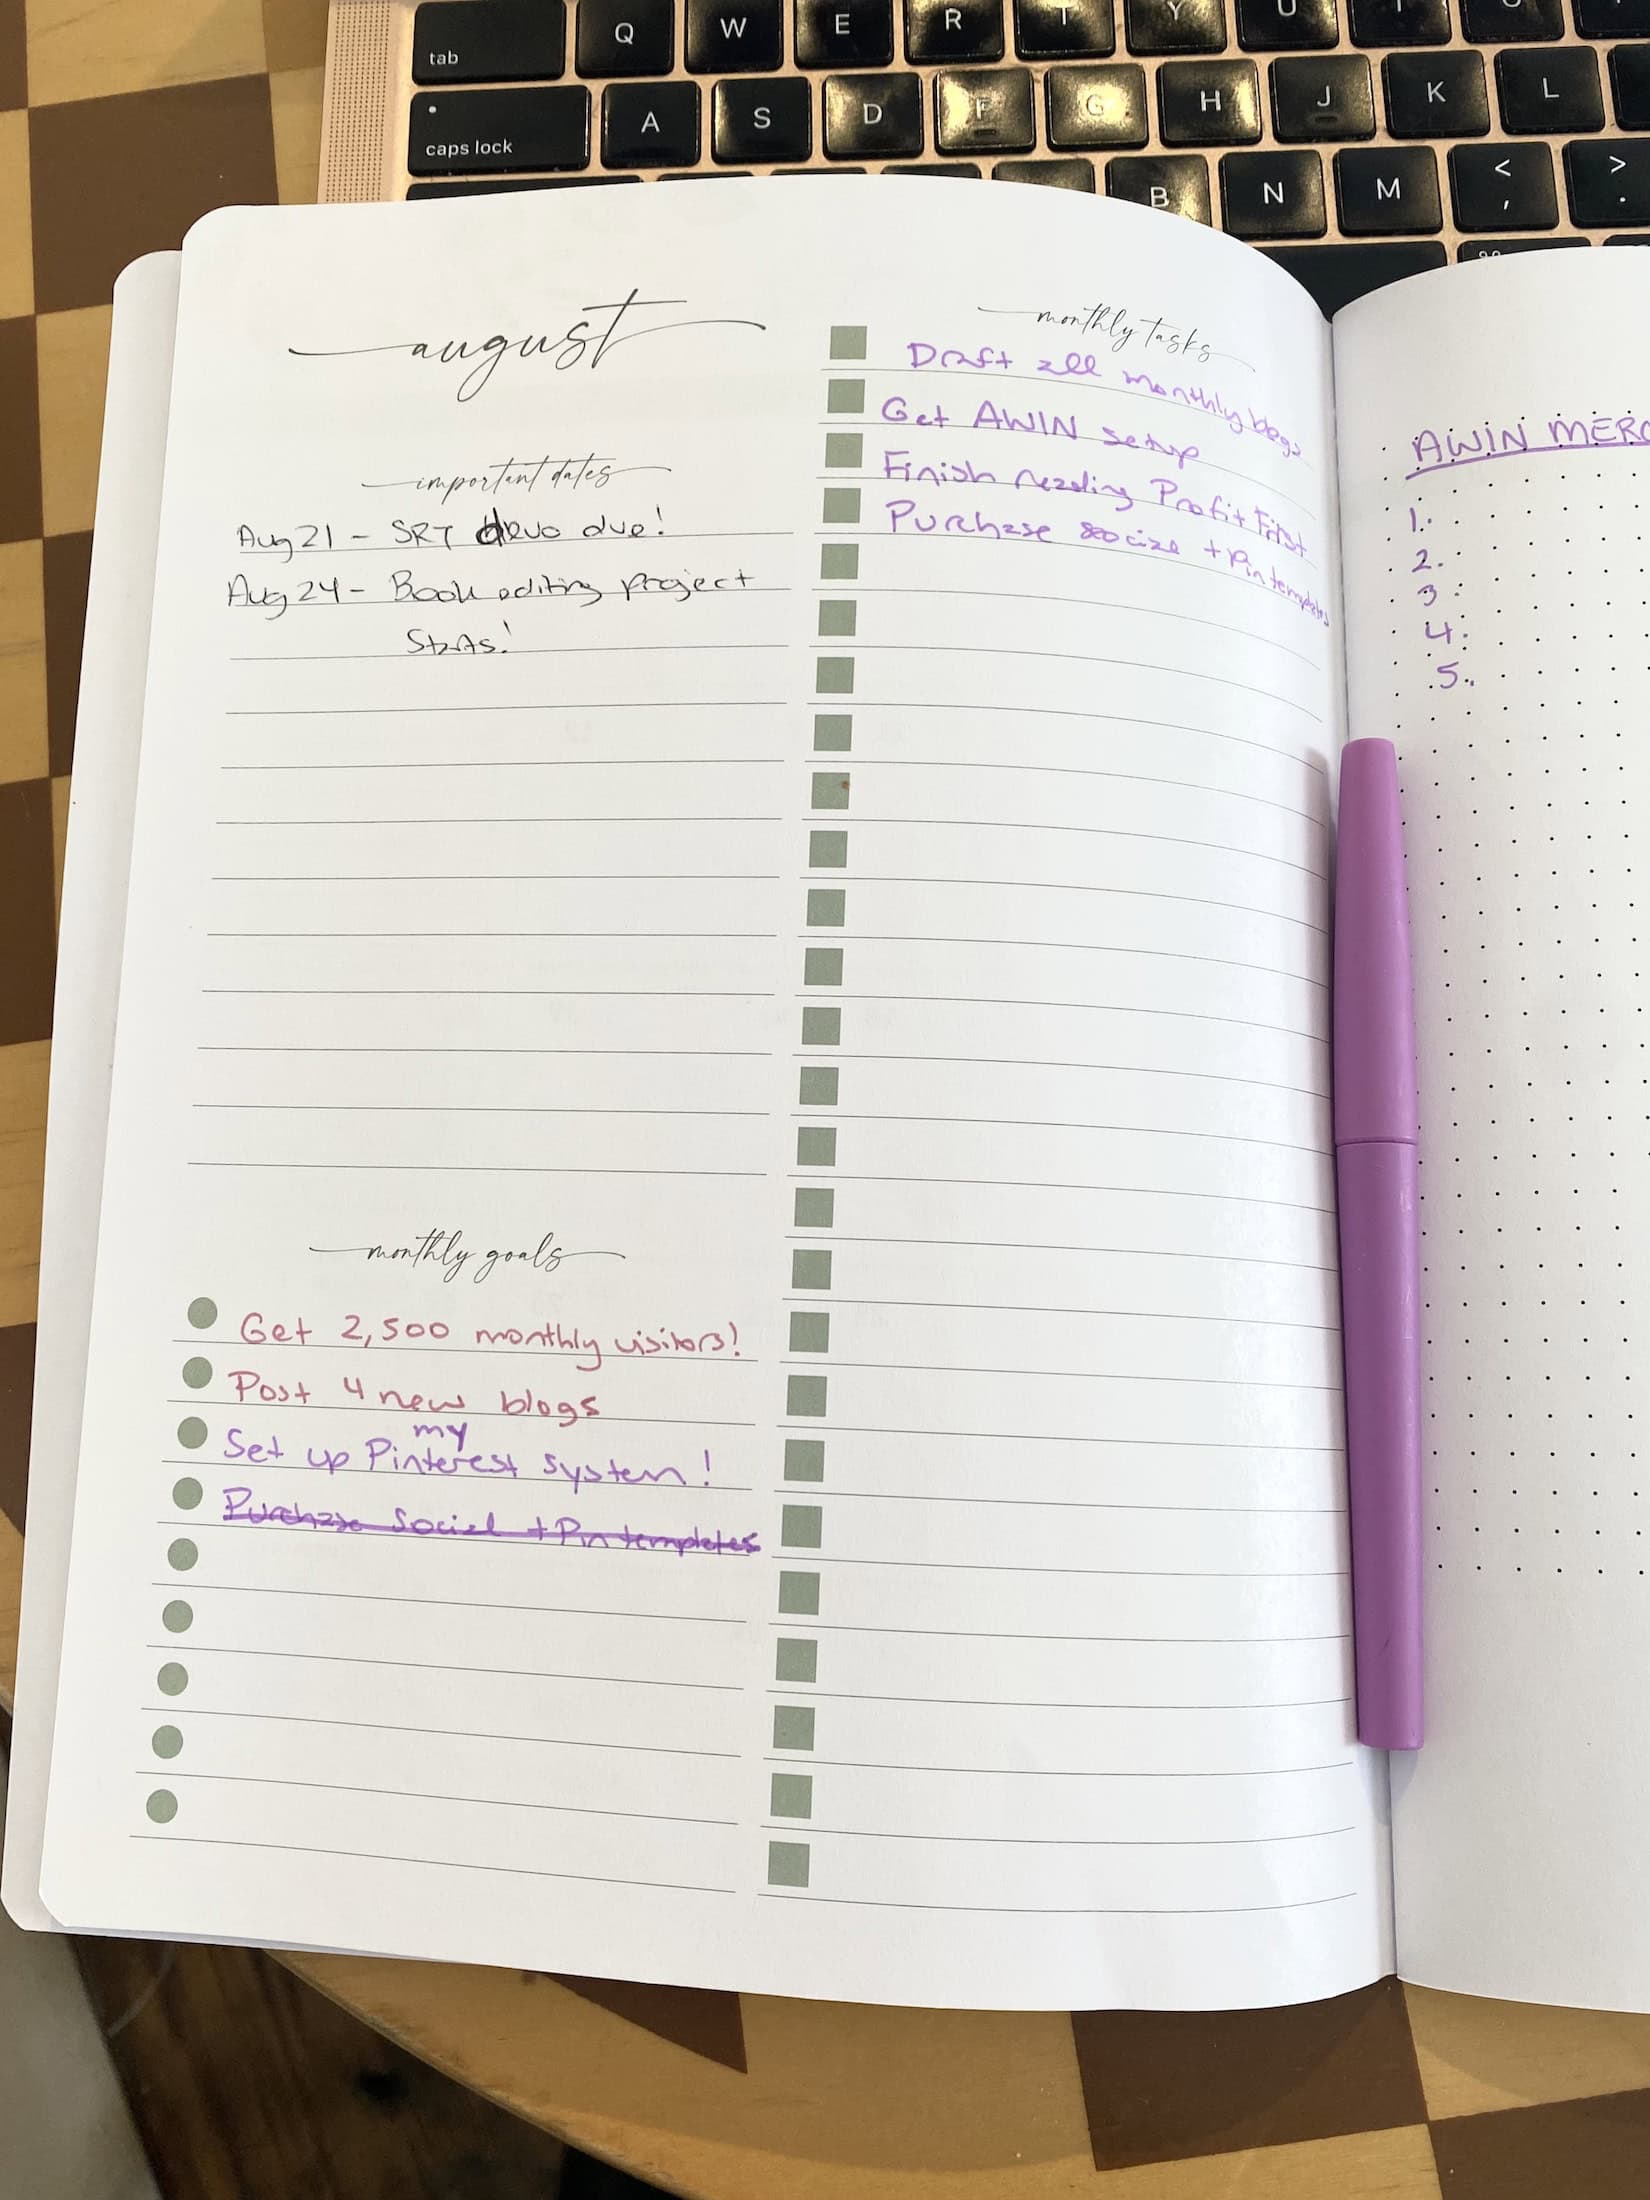 tab
Q W E R T Y U I O
caps lock
A S D F G H J K L
B N M < ,
> .
august
important dates
Aug 21 - SRT devo due!
Aug 24 - Book editing project
Starts!
monthly goals
Get 2,500 monthly visitors!
Post 4 new blogs
my
Set up Pinterest system!
Purchase Social + Pin templates
monthly tasks
Draft all monthly blogs
Get AWIN setup
Finish reading Profit First
Purchase social + Pin templates
AWIN MERC
1.
2.
3
4.
5.